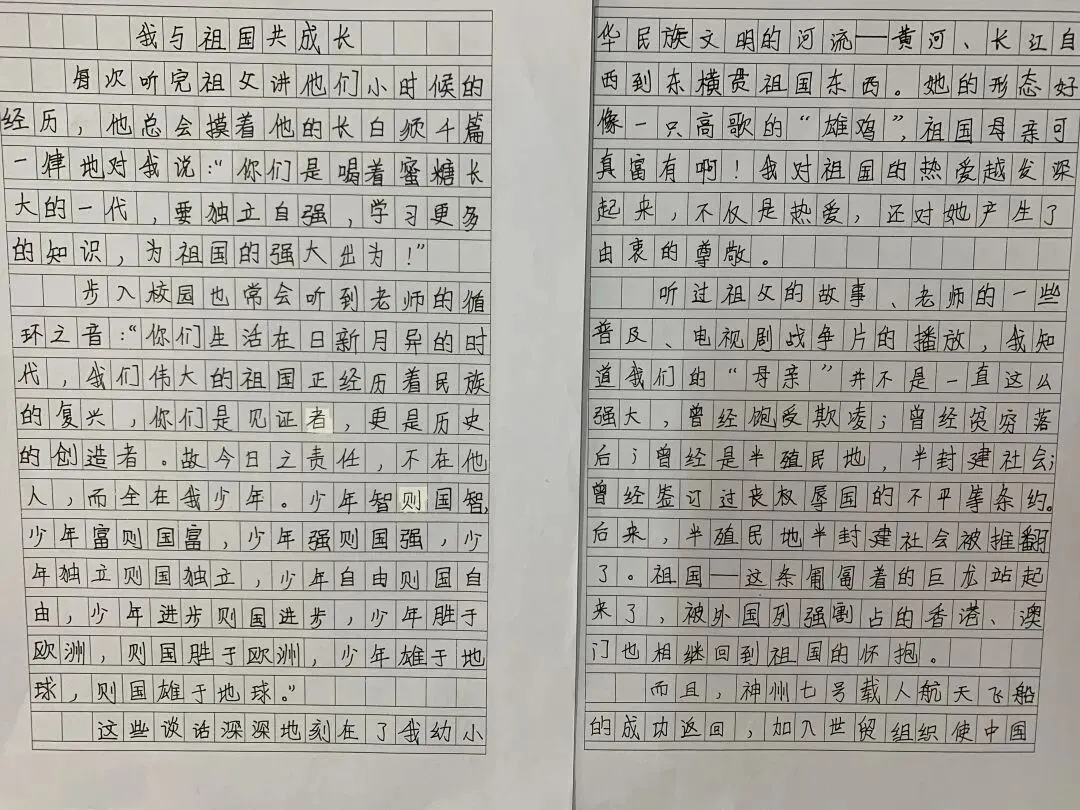 我与祖国共成长
每次听完祖父讲他们小时候的
经历，他总会摸着他的长白须千篇
一律地对我说：“你们是喝着蜜糖长
大的一代，要独立自强，学习更多
的知识，为祖国的强大出为！”
步入校园也常会听到老师的循
环之音：“你们生活在日新月异的时
代，我们伟大的祖国正经历着民族
的复兴，你们是见证者，更是历史
的创造者。故今日之责任，不在他
人，而全在我少年。少年智则国智，
少年富则国富，少年强则国强，少
年独立则国独立，少年自由则国自
由，少年进步则国进步，少年胜于
欧洲，则国胜于欧洲，少年雄于地
球，则国雄于地球。”
这些谈话深深地刻在了我幼小
华民族文明的河流——黄河、长江自
西到东横贯祖国东西。她的形态好
像一只高歌的“雄鸡”，祖国母亲可
真富有啊！我对祖国的热爱越发深
起来，不仅是热爱，还对她产生了
由衷的尊敬。
听过祖父的故事、老师的一些
普及、电视剧战争片的播放，我知
道我们的“母亲”并不是一直这么
强大，曾经饱受欺凌；曾经贫穷落
后；曾经是半殖民地，半封建社会；
曾经签订过丧权辱国的不平等条约。
后来，半殖民地半封建社会被推翻
了。祖国——这条匍匐着的巨龙站起
来了，被外国列强割占的香港、澳
门也相继回到祖国的怀抱。
而且，神州七号载人航天飞船
的成功返回，加入世贸组织使中国